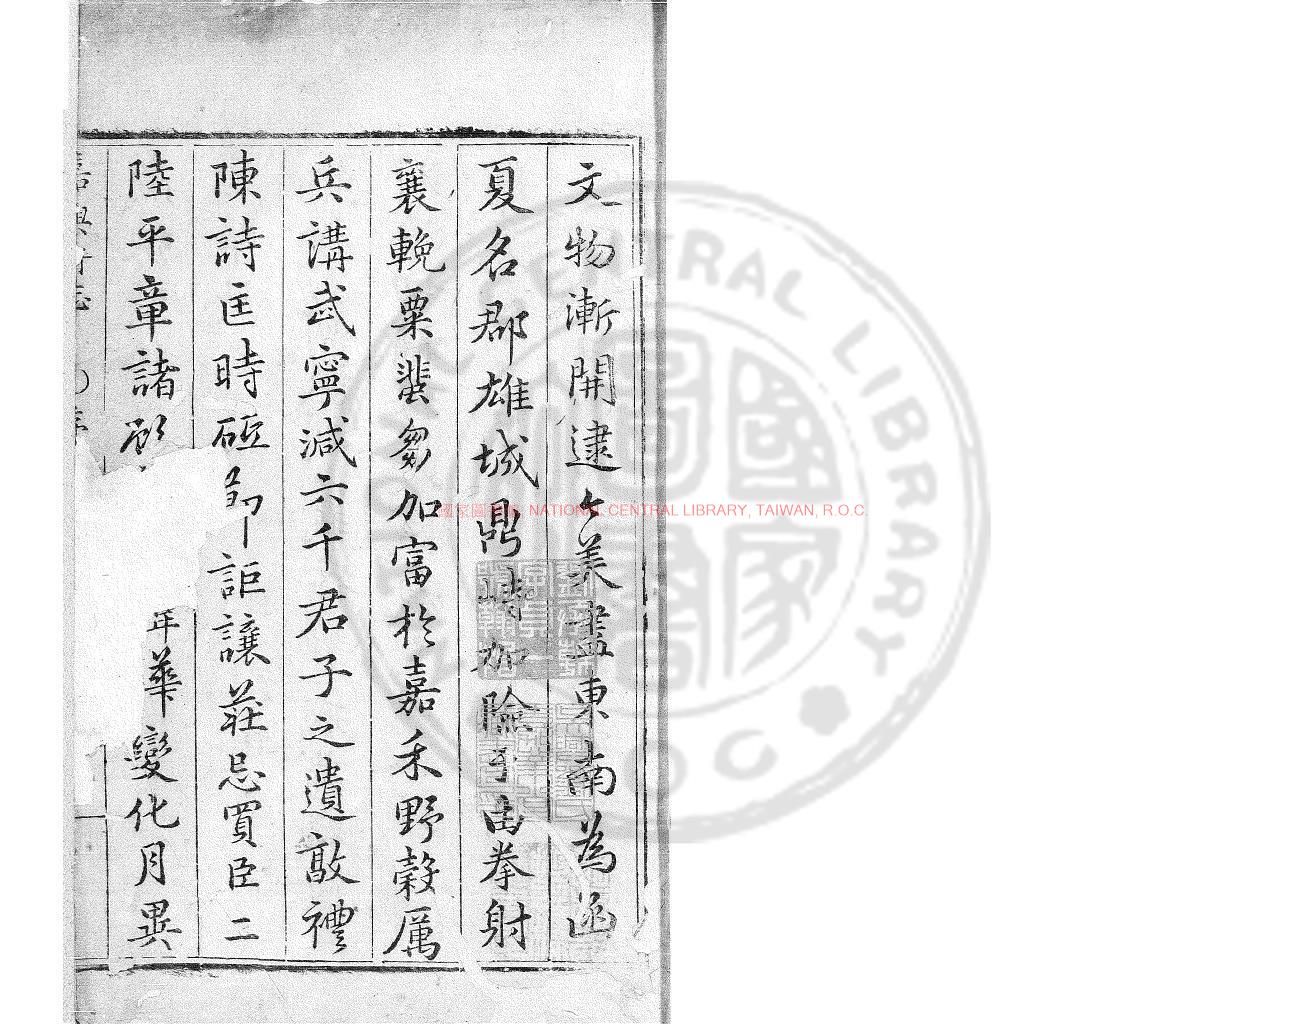 文物漸開逮今羙盡東南為函
夏名郡雄城鼎峙加險于由拳射
襄輓粟蜚芻加富於嘉禾野穀厲
兵講武寧減六千君子之遺敦禮
陳詩匡時砥節詎讓莊忌買臣二
陸平章諸
年華變化月異
嘉興府志
序
國家圖書館 NATIONAL CENTRAL LIBRARY, TAIWAN, R.O.C.
CENTRAL LIBRARY
ROC
國家